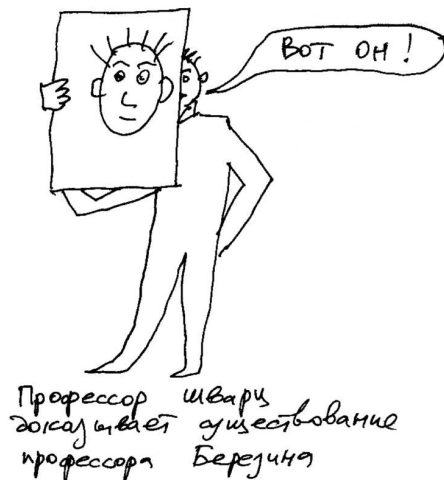 Вот он!
Профессор шварц
доказывает существование
профессора Березина